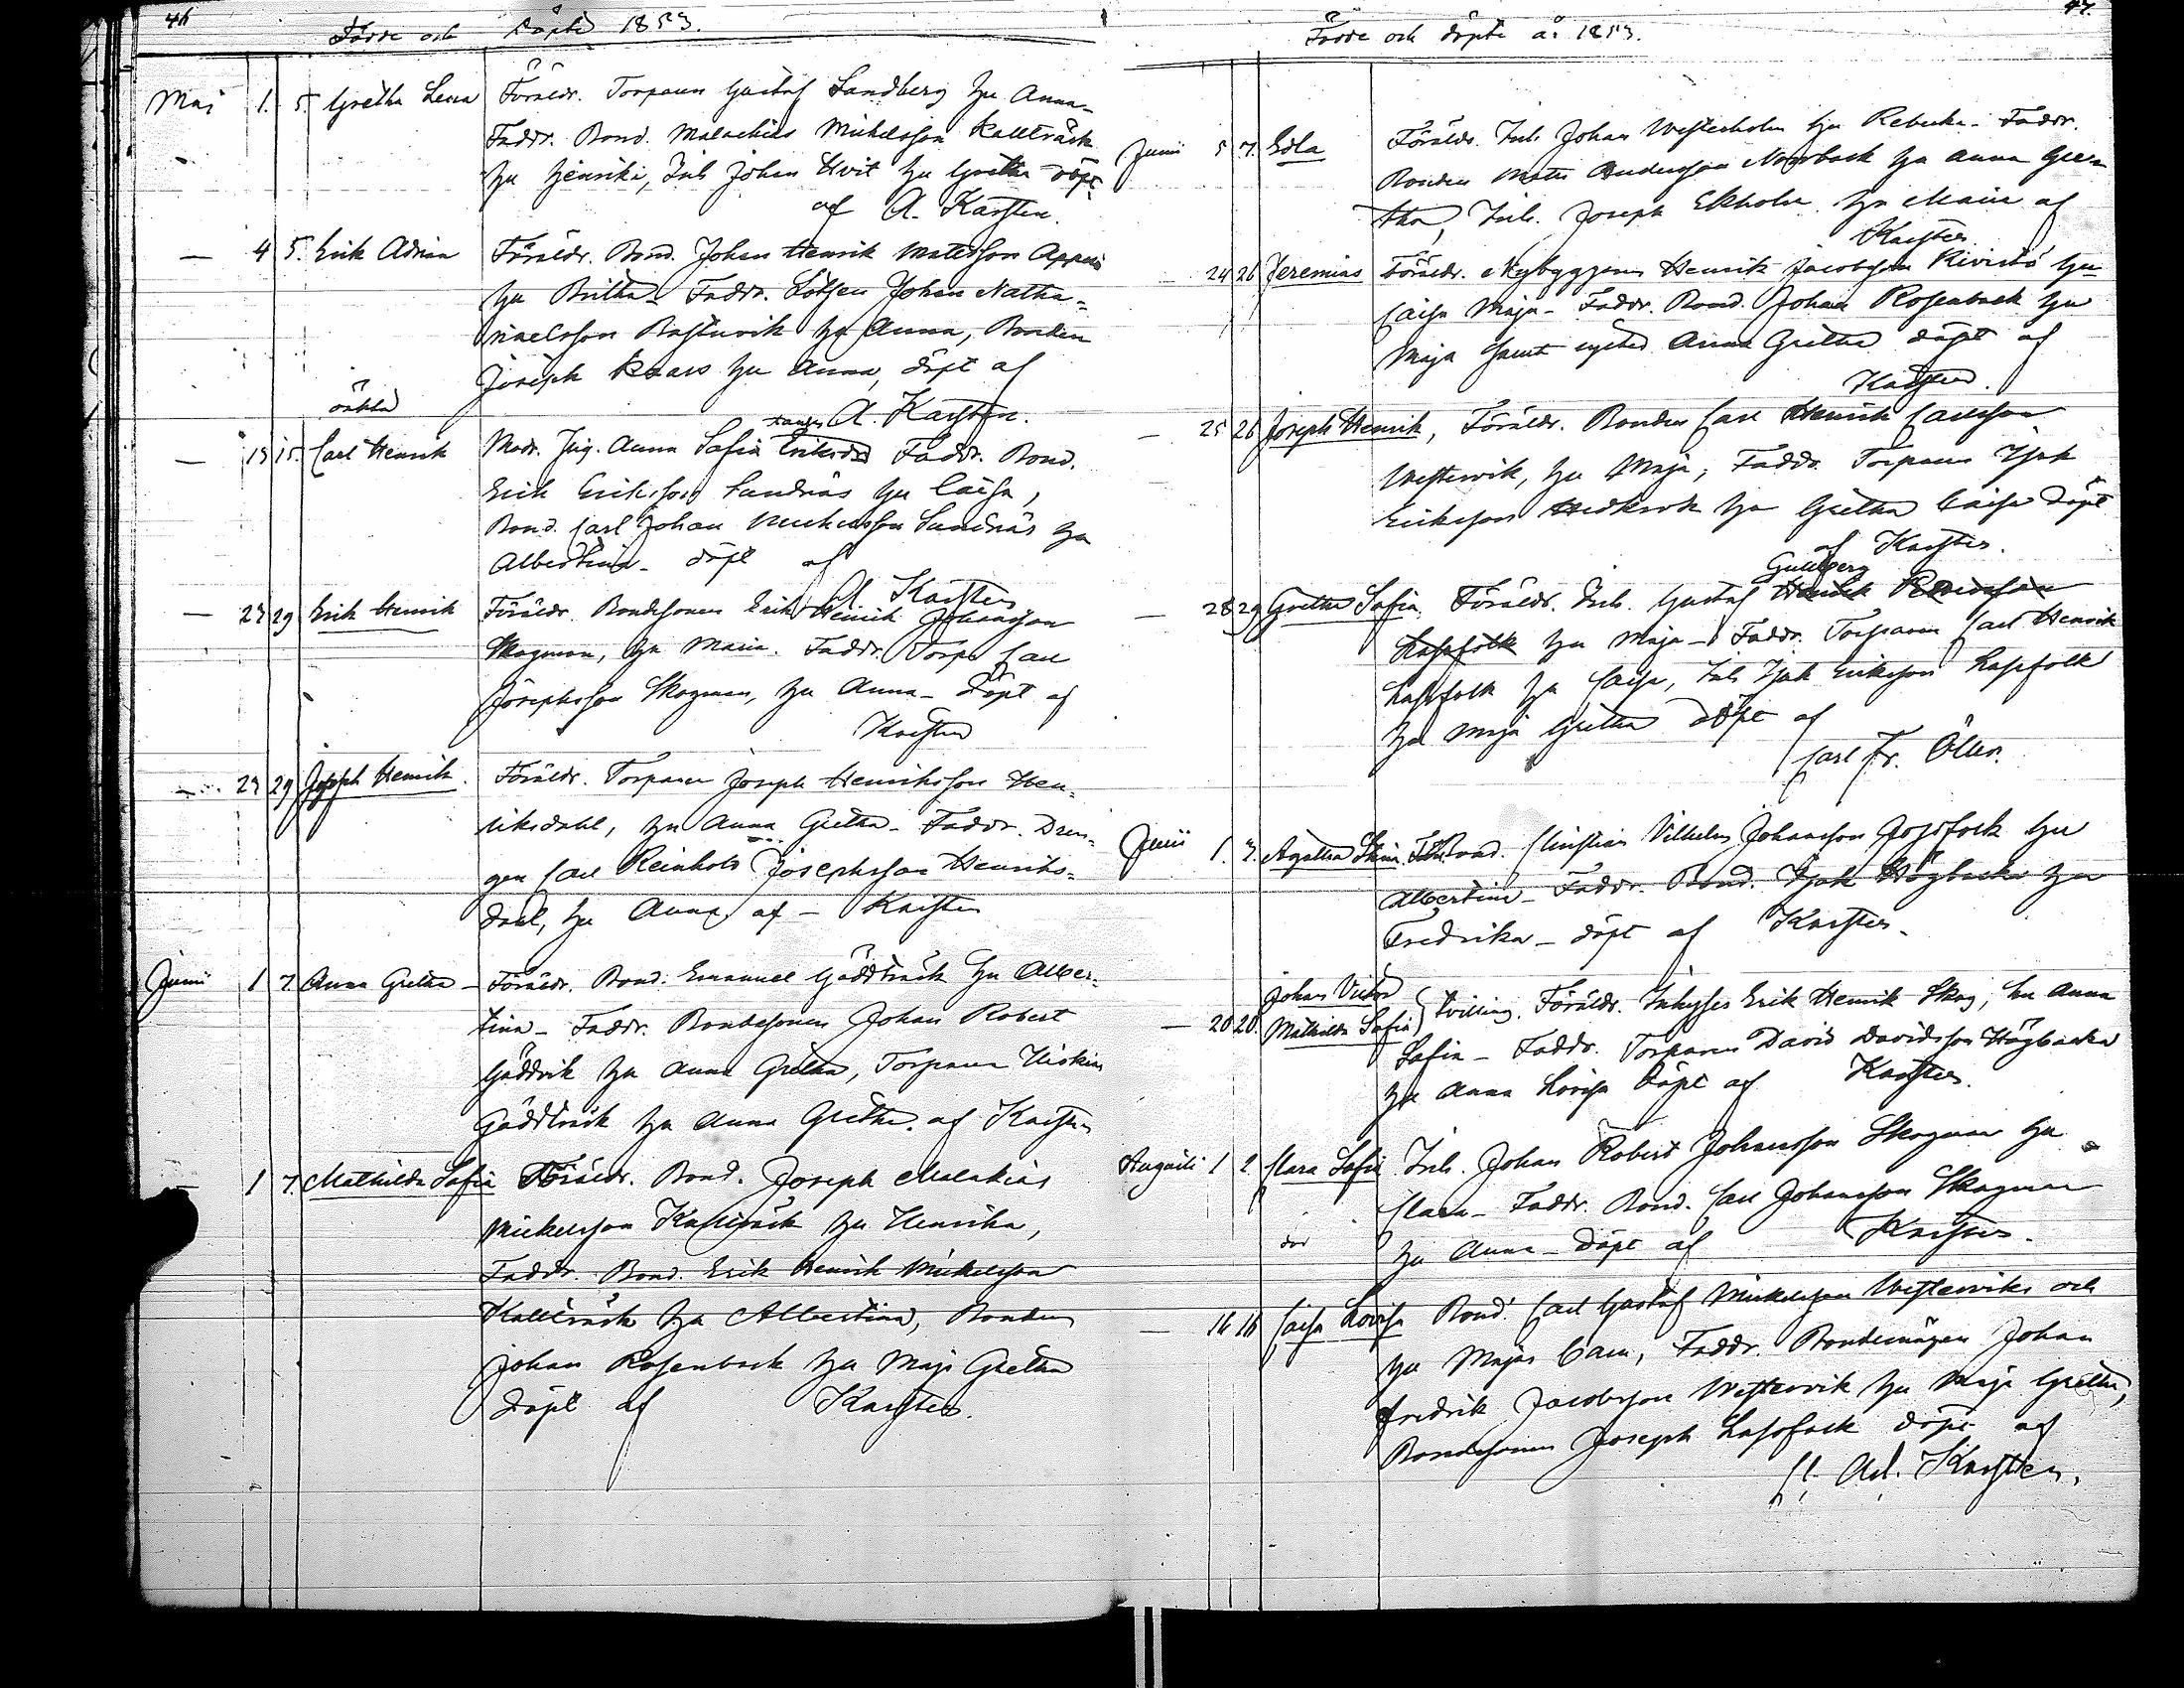 46
Födde och Döpte 1853.
Maj 1. 5. Gretha Lena Föräldr. Torparen Gustaf Sandberg hu Anna-
Faddr. Bond. Malachias Mickelsson Kallträsk
hu Henrika, Inh Johan Hvit hu Gretha döpt
af A. Karsten.
— 4 5. Erik Adrian Föräldr. Bond. Johan Henrik Mattsson
hu Britha- Faddr. Lotsen Johan Natha-
naelsson hu Anna, Bonden
Joseph hu Anna, döpt af
A. Karsten.
oäkta
— 13 15. Carl Henrik Modr. Pig. Anna Safia Eriksdr Faddr. Bond.
Erik Eriksson Sundnäs hu Caisa,
Bond. Carl Johan Mickelsson Sundnäs hu
Albertina- döpt af
A Karsten
— 27 29 Erik Henrik Föräldr. Bondesonen Erik Henrik Johansson
Skogman, hu Maria. Faddr. Torp. Carl
Josephsson Skogman, hu Anna- döpt af
Karsten
— 27 29 Joseph Henrik. Föräldr. Torparen Joseph Henriksson Hen-
riksdahl, hu Anna Gretha- Faddr. Dren-
gen Carl Reinhold Josephsson Henriks-
dahl, hu Anna, af — Karsten
Junii 1 7 Anna Gretha — Föräldr. Bond. Emanuel Gäddträsk hu Alber-
tina- Faddr. Bondesonen Johan Robert
Gäddvik hu Anna Gretha, Torparen Hiskias
Gäddträsk hu Anna Gretha. af Karsten
— 1 7. Mathilda Safia Föräldr. Bond. Joseph Malakias
Mickelsson Kallträsk hu Henrika,
Faddr. Bond. Erik Henrik Mickelsson
Kallträsk hu Albertina, Bonden
Johan Rosenback hu Maja Gretha
döpt af Karsten.
47.
Födde och döpte år 1853.
Junii 5 7. Edla Föräldr. Inh. Johan Westerholm hu Rebecka- Faddr.
Bonden Matts Andersson Norrback hu Anna Gre-
tha, Inh. Joseph Ekholm hu Maria af
Karsten.
— 24 26 Jeremias Föräldr. Nybyggaren Henrik Jacobsson Kivistö hu
Caisa Maja- Faddr. Bond. Johan Rosenback hu
Maja samt Anna Gretha döpt af
Karsten.
— 25 26 Joseph Henrik, Föräldr. Bonden Carl Henrik Carlsson
Westervik, hu Maja, Faddr. Torparen Isak
Eriksson Hedkrok hu Gretha Caisa döpt
af Karsten.
Gullberg
— 28 29 Gretha Safia. Föräldr. Inh. Gustaf Henrik
Lassfolk hu Maja- Faddr. Torparen Carl Henrik
Lassfolk hu Caisa, Inh Isak Eriksson Lassfolk
hu Maja Gretha döpt af
Carl Fr.
Julii 1. 3. Agatha Bond. Christian Vilhelm Johansson Gossfolk hu
Albertina- Faddr. Bond. Isak Högbacka hu
Fredrika- döpt af Karsten.
Johan Victor
— 20 20. Mathilda Safia } tvilling. Föräldr. Inhyses Erik Henrik Skog, hu Anna
Safia- Faddr. Torparen David Davidsson Högbacka
hu Anna Lovisa döpt af Karsten.
Augusti 1 2. Clara Safia Inh. Johan Robert Johansson Skogman hu
Clara- Faddr. Bond. Carl Johansson Skogman
död hu Anna- döpt af Karsten.
— 16 16 Caisa Lovisa Bond. Carl Gustaf Mickelsson Westervik och
hu Maja Caisa, Faddr. Bondemågen Johan
Fredrik Jacobsson Westervik hu Maja Gretha,
Bondesonen Joseph Lassfolk döpt af
Ad. Karsten.